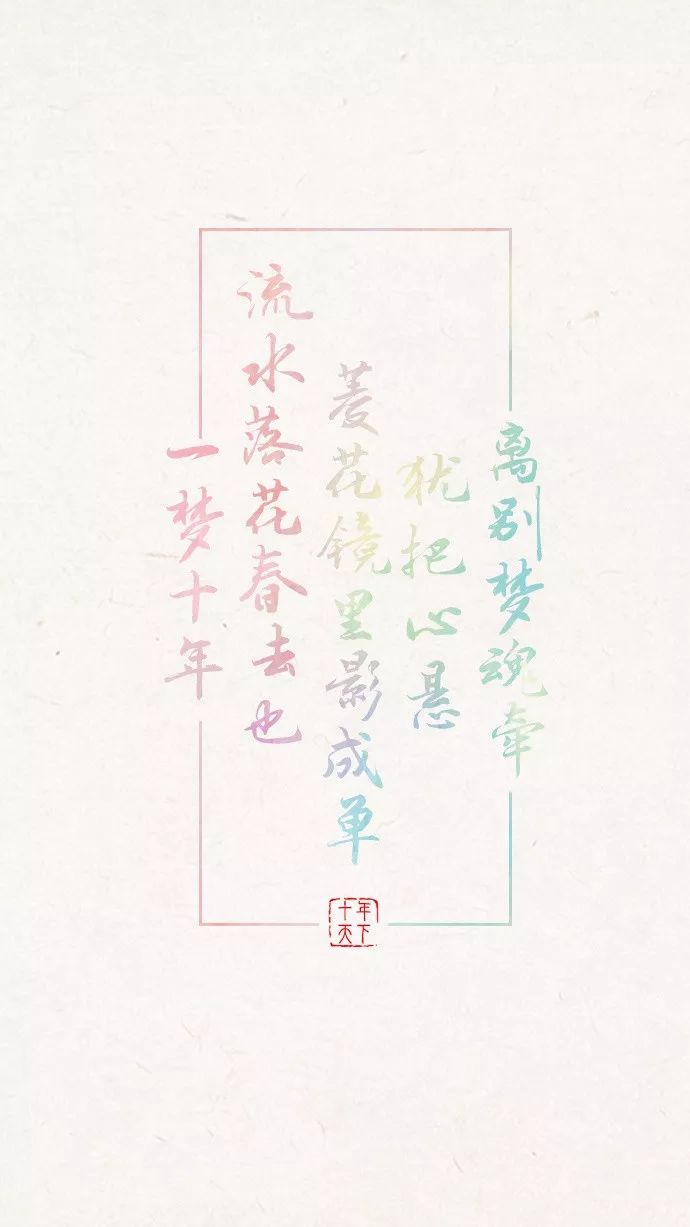 离别梦魂牵
犹把心悬
菱花镜里影成单
流水落花春去也
一梦十年
十年
天下